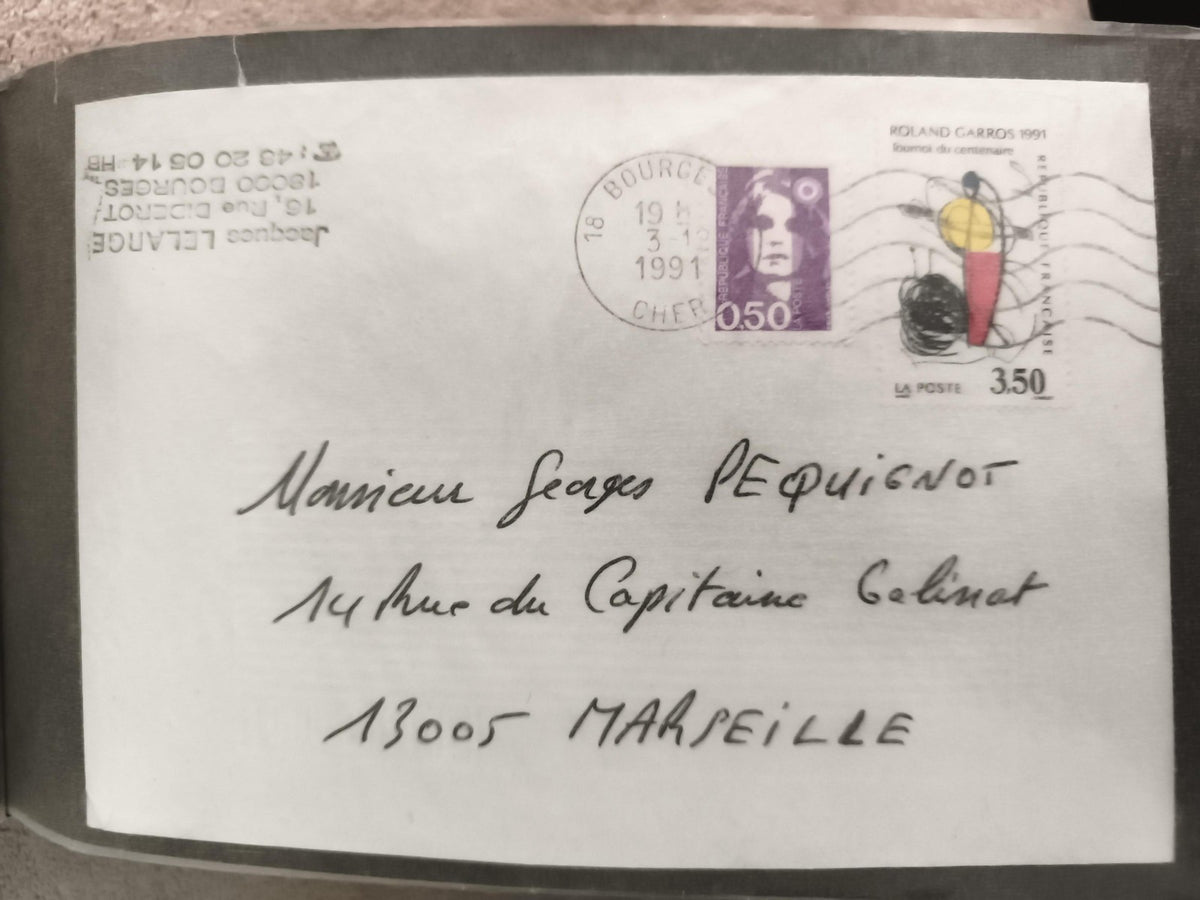 Jacques LELANGE
16, Rue DIDEROT
18000 BOURGES
☎: 48 20 05 14 HB
18 BOURGES
19 H
3-12
1991
CHER
REPUBLIQUE FRANÇAISE
0,50
LA POSTE
ROLAND GARROS 1991
Tournoi du centenaire
REPUBLIQUE FRANÇAISE
LA POSTE 3,50
Monsieur Georges PEQUIGNOT
14 Rue du Capitaine Galinat
13005 MARSEILLE